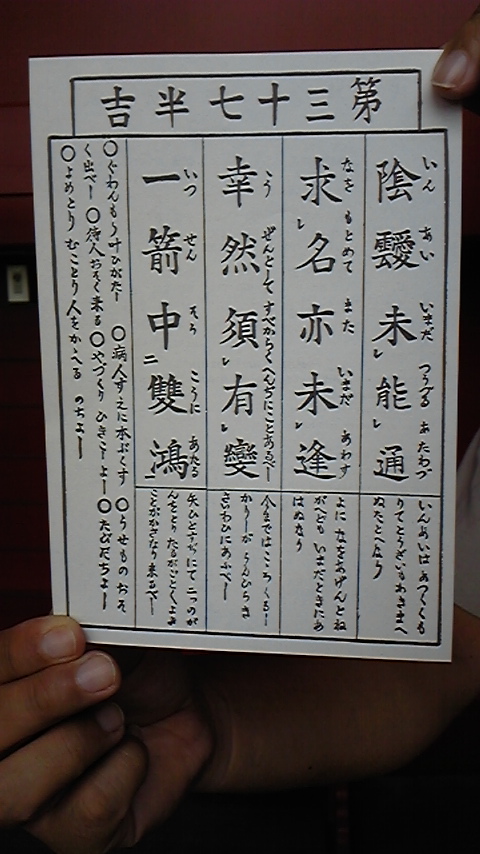 第三十七半吉
陰靉未能通
いん あい いまだ つうずる あたわず
求名亦未逢
なを もとめて また いまだ あわず
幸然須有變
こう ぜんとして すべからく へんぢにことあるべー
一箭中雙鴻
いつ せん そら こうに あたる
いんあいはあつくくも
りてとうざいもあきまへ
ぬたとへなり
よに なをあげんとね
がへども いまだときにあ
はぬなり
今まではこころくるー
かりーが うんひらき
さいわひにあふべー
矢ひとすぢにて二つのが
んをとりたるがごとくよき
ことがかさなり来るべー
○ぐわんもう叶ひがたー ○病人すえに本ぷくす ○うせものおそ
く出べー ○待人おそく来る ○やづくり ひきこーよー ○たびだちよー
○よめとり むことり人をかゝへる のちよー